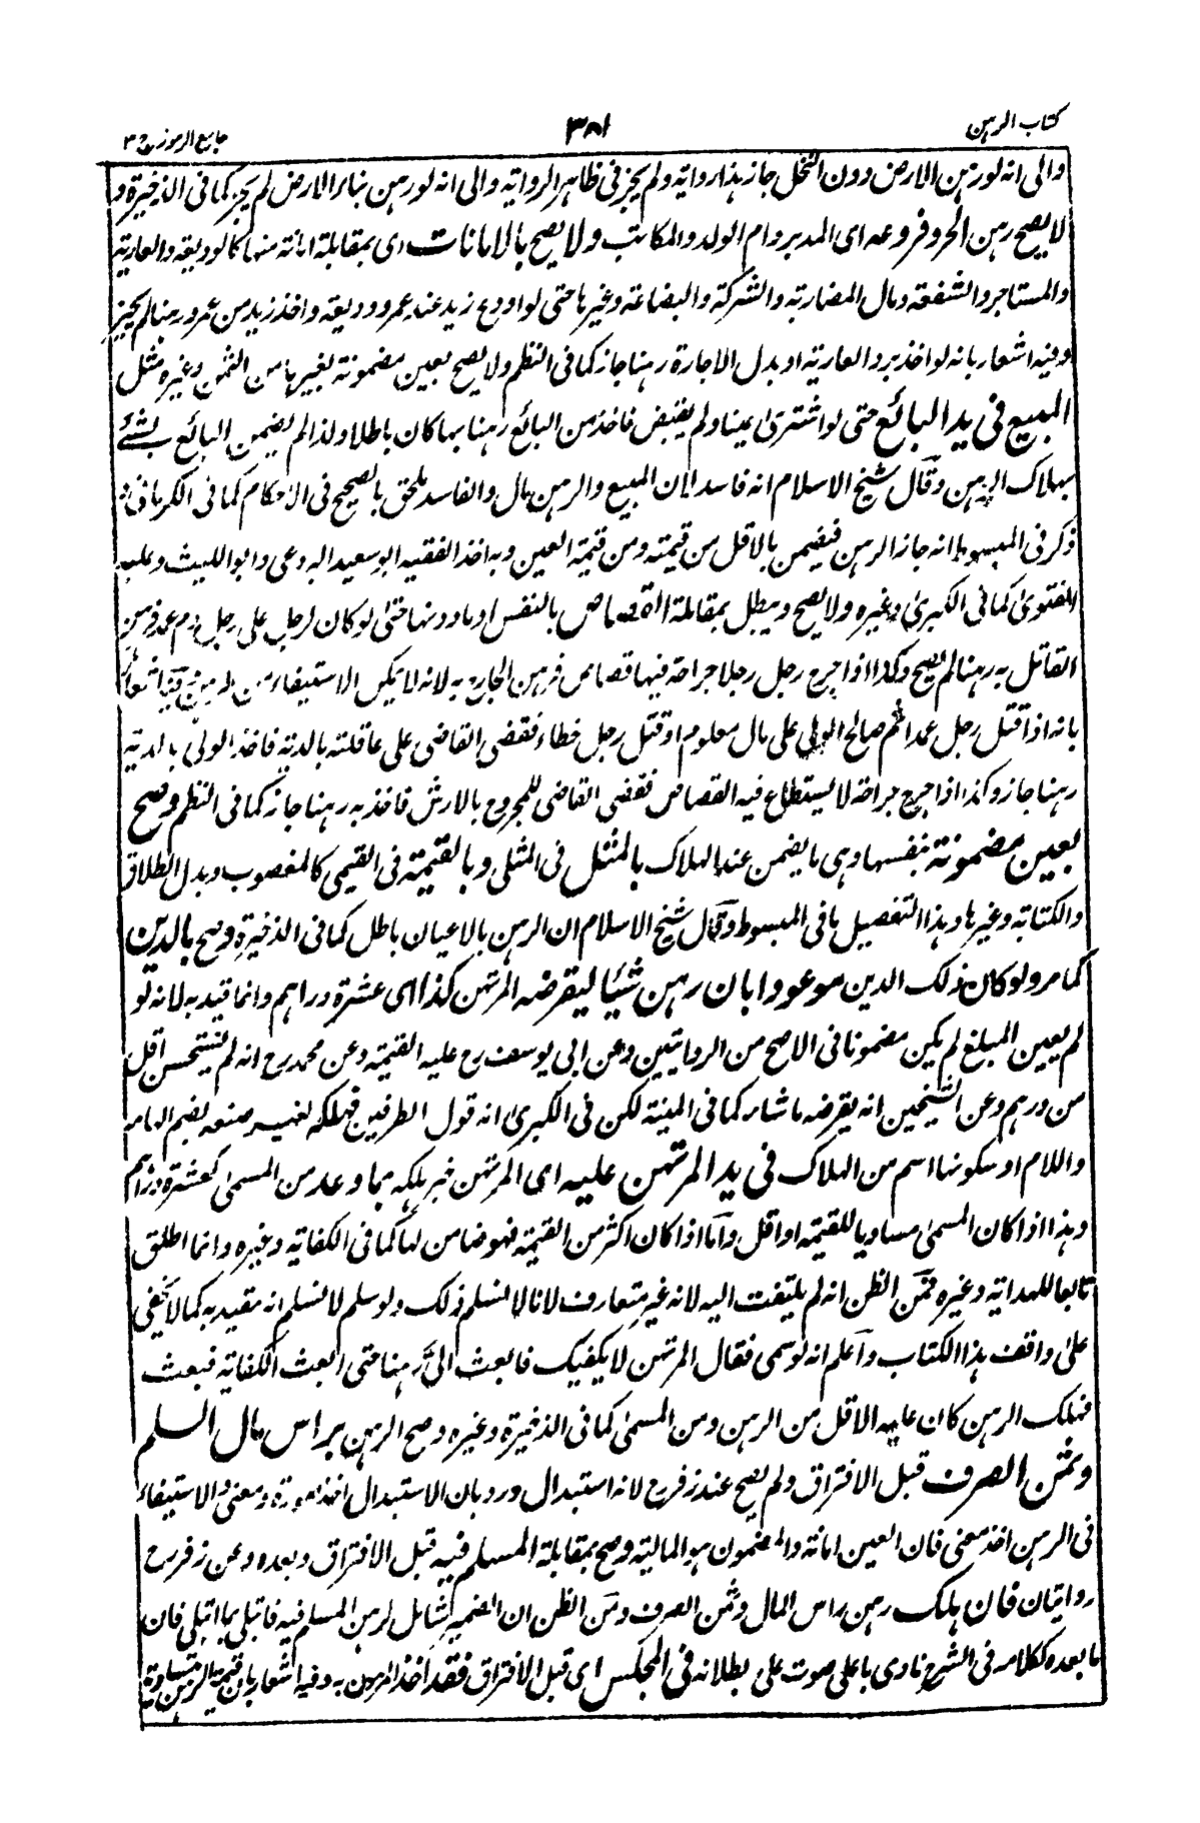 كتاب الرهن
٣٨١
جامع الرموز ج ٣
والى انه لو رهن الارض دون النخل جاز بهذا رواية ولم يجز فى ظاهر الرواية والى انه لو رهن بناء الارض لم يجز كما فى الذخيرة و
لا يصح رهن الحر وفروعه اى المدبر وام الولد والمكاتب ولا يصح بالامانات اى بمقابلة امانة منها كالوديعة والعارية
والمستاجر والشفعة ومال المضاربة والشركة والبضاعة وغيرها حتى لو اودع زيد عند عمرو وديعة واخذ زيد من عمرو رهنا لم يجز
وفيه اشعار بانه لو اخذ برد العارية او بدل الاجارة رهنا جاز كما فى النظم ولا يصح بعين مضمونة بغيرها من الثمن وغيره مثل
المبيع فى يد البائع حتى لو اشترى عينا ولم يقبض فاخذ من البائع رهنا بها كان باطلا ولذا لم يضمن البائع بشئ
بهلاك الرهن وقال شيخ الاسلام انه فاسد لان المبيع والرهن مال والفاسد ملحق بالصحيح فى الاحكام كما فى الكرمانى و
ذكر فى المبسوط انه جاز الرهن فيضمن بالاقل من قيمته ومن قيمة العين وبه اخذ الفقيه ابو سعيد البردعى وابو الليث وعليه
الفتوى كما فى الكبرى وغيره ولا يصح ويبطل بمقابلة القصاص بالنفس او ما دونها حتى لو كان لرجل على رجل دم عمد فرهن
القاتل به رهنا لم يصح وكذا اذا جرح رجل رجلا جراحة فيها قصاص فرهن الجارح به لانه لا يمكن الاستيفاء من المرهون وفيه اشعار
بانه اذا قتل رجل عمدا ثم صالح الولى على مال معلوم او قتل رجل خطاء فقضى القاضى على عاقلته بالدية فاخذ الولى بالدية
رهنا جاز وكذا اذا جرح جراحة لا يستطاع فيه القصاص فقضى القاضى للمجروح بالارش فاخذ به رهنا جاز كما فى النظم وصح
بعين مضمونة بنفسها وهى ما يضمن عند الهلاك بالمثل فى المثلى وبالقيمة فى القيمى كالمغصوب وبدل الطلاق
والكتابة وغيرها وهذا التفصيل ما فى المبسوط وقال شيخ الاسلام ان الرهن بالاعيان باطل كما فى الذخيرة وصح بالدين
كما مر ولو كان ذلك الدين موعودا بان رهن شيئا ليقرضه المرتهن كذا اى عشرة دراهم وانما قيد به لانه لو
لم يعين المبلغ لم يكن مضمونا فى الاصح من الروايتين وعن ابى يوسف رح عليه القيمة وعن محمد رح انه لم يستحسن اقل
من درهم وعن الشيخين انه يقرضه ما شاء كما فى المنية لكن فى الكبرى انه قول الطرفين فهلكه بغير صنعه بضم الهاء
واللام او سكونها اسم من الهلاك فى يد المرتهن عليه اى المرتهن خبر هلكه بما وعد من المسمى كعشرة دراهم
وهذا اذا كان المسمى مساويا للقيمة او اقل واما اذا كان اكثر من القيمة فهو ضامن لها كما فى الكفاية وغيره وانما اطلق
تابعا للهداية وغيره فمن الظن انه لم يلتفت اليه لانه غير متعارف لانا لا نسلم ذلك ولو سلم لا نسلم انه مقيد به كما لا يخفى
على واقف هذا الكتاب واعلم انه لو سمى فقال المرتهن لا يكفيك فابعث الى رهنا حتى ابعث الكفاية فبعث
فهلك الرهن كان عليه الاقل من الرهن ومن المسمى كما فى الذخيرة وغيره وصح الرهن براس مال السلم
وثمن الصرف قبل الافتراق ولم يصح عند زفر رح لانه استبدال ورد بان الاستبدال اخذ صورة ومعنى والاستيفاء
فى الرهن اخذ معنى فان العين امانة والمضمون هو المالية وصح بمقابلة المسلم فيه قبل الافتراق وبعده وعن زفر رح
روايتان فان هلك رهن راس المال وثمن الصرف ومن الظن ان الضمير شامل لرهن المسلم فيه فابتلى بما ابتلى فان
ما بعده ككلامه فى الشرح نادى باعلى صوت على بطلانه فى المجلس اى قبل الافتراق فقد اخذ المرهون به وفيه اشعار بان قيمة الرهن مساوية